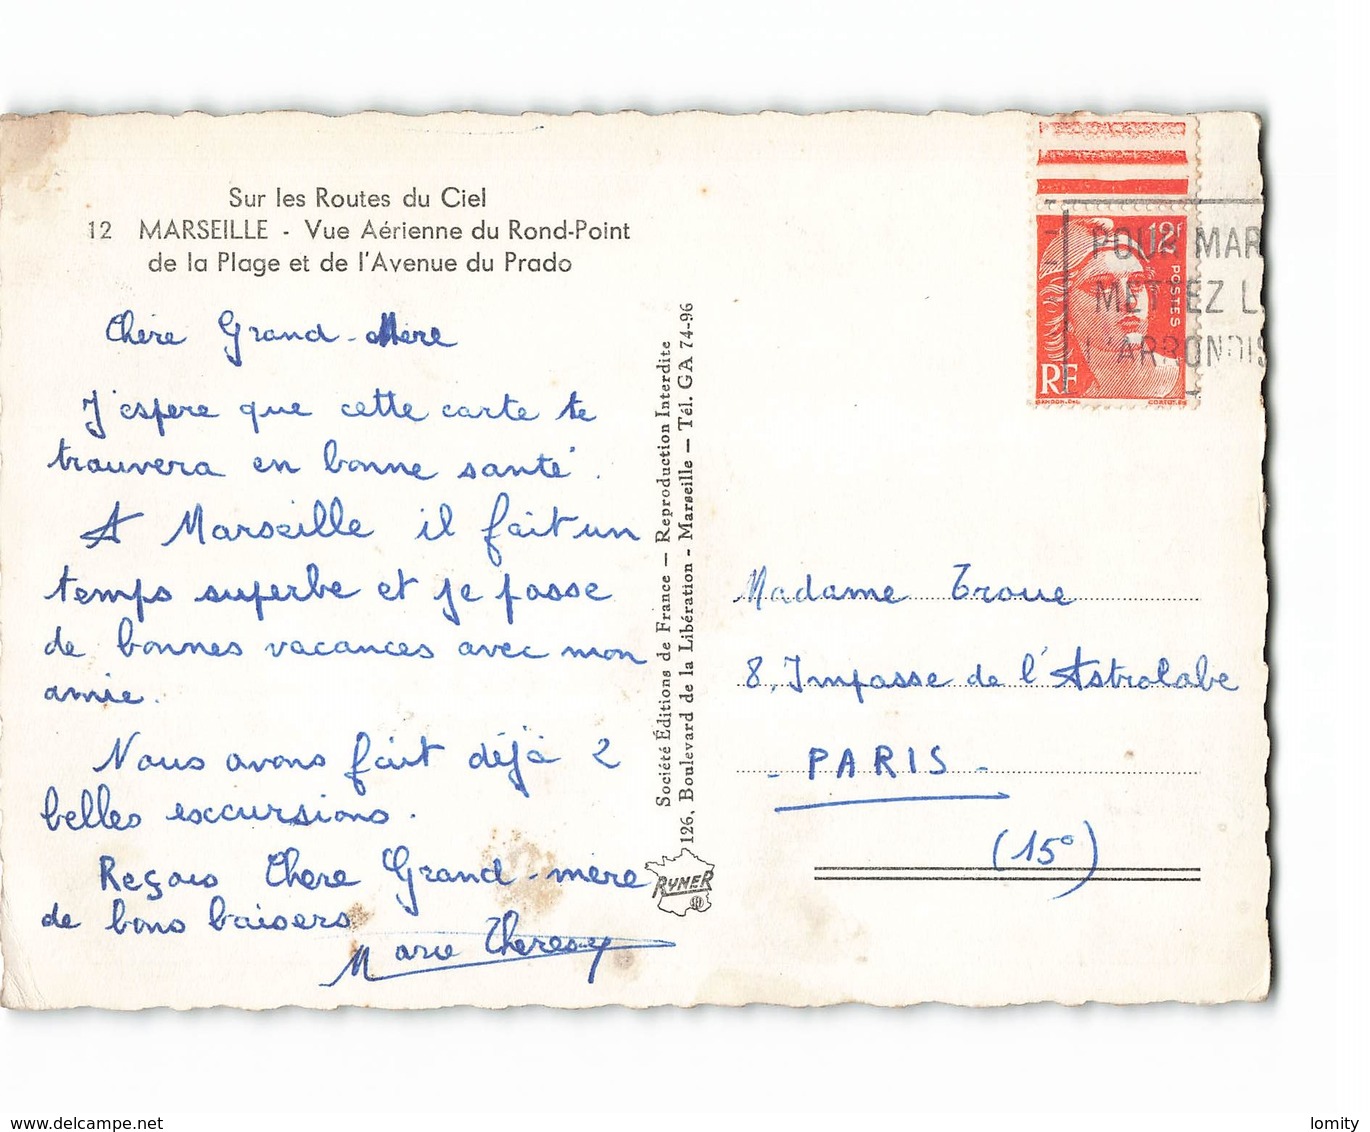 Sur les Routes du Ciel
12 MARSEILLE - Vue Aérienne du Rond-Point
de la Plage et de l'Avenue du Prado
Chère Grand-Mère
J'espère que cette carte te
trouvera en bonne santé.
A Marseille il fait un
temps superbe et je passe
de bonnes vacances avec mon
amie.
Nous avons fait déjà 2
belles excursions.
Reçois Chère Grand-mère
de bons baisers
Marie Therese
Société Éditions de France — Reproduction Interdite
126, Boulevard de la Libération - Marseille — Tél. GA 74-96
RYNER
12f
POSTES
RF
GANDON.DEL
CORTOT.SC
POUR MAR
METTEZ L
L'ARRONDIS
Madame Troue
8, Impasse de l'Astrolabe
- PARIS -
(15°)
www.delcampe.net
lomity